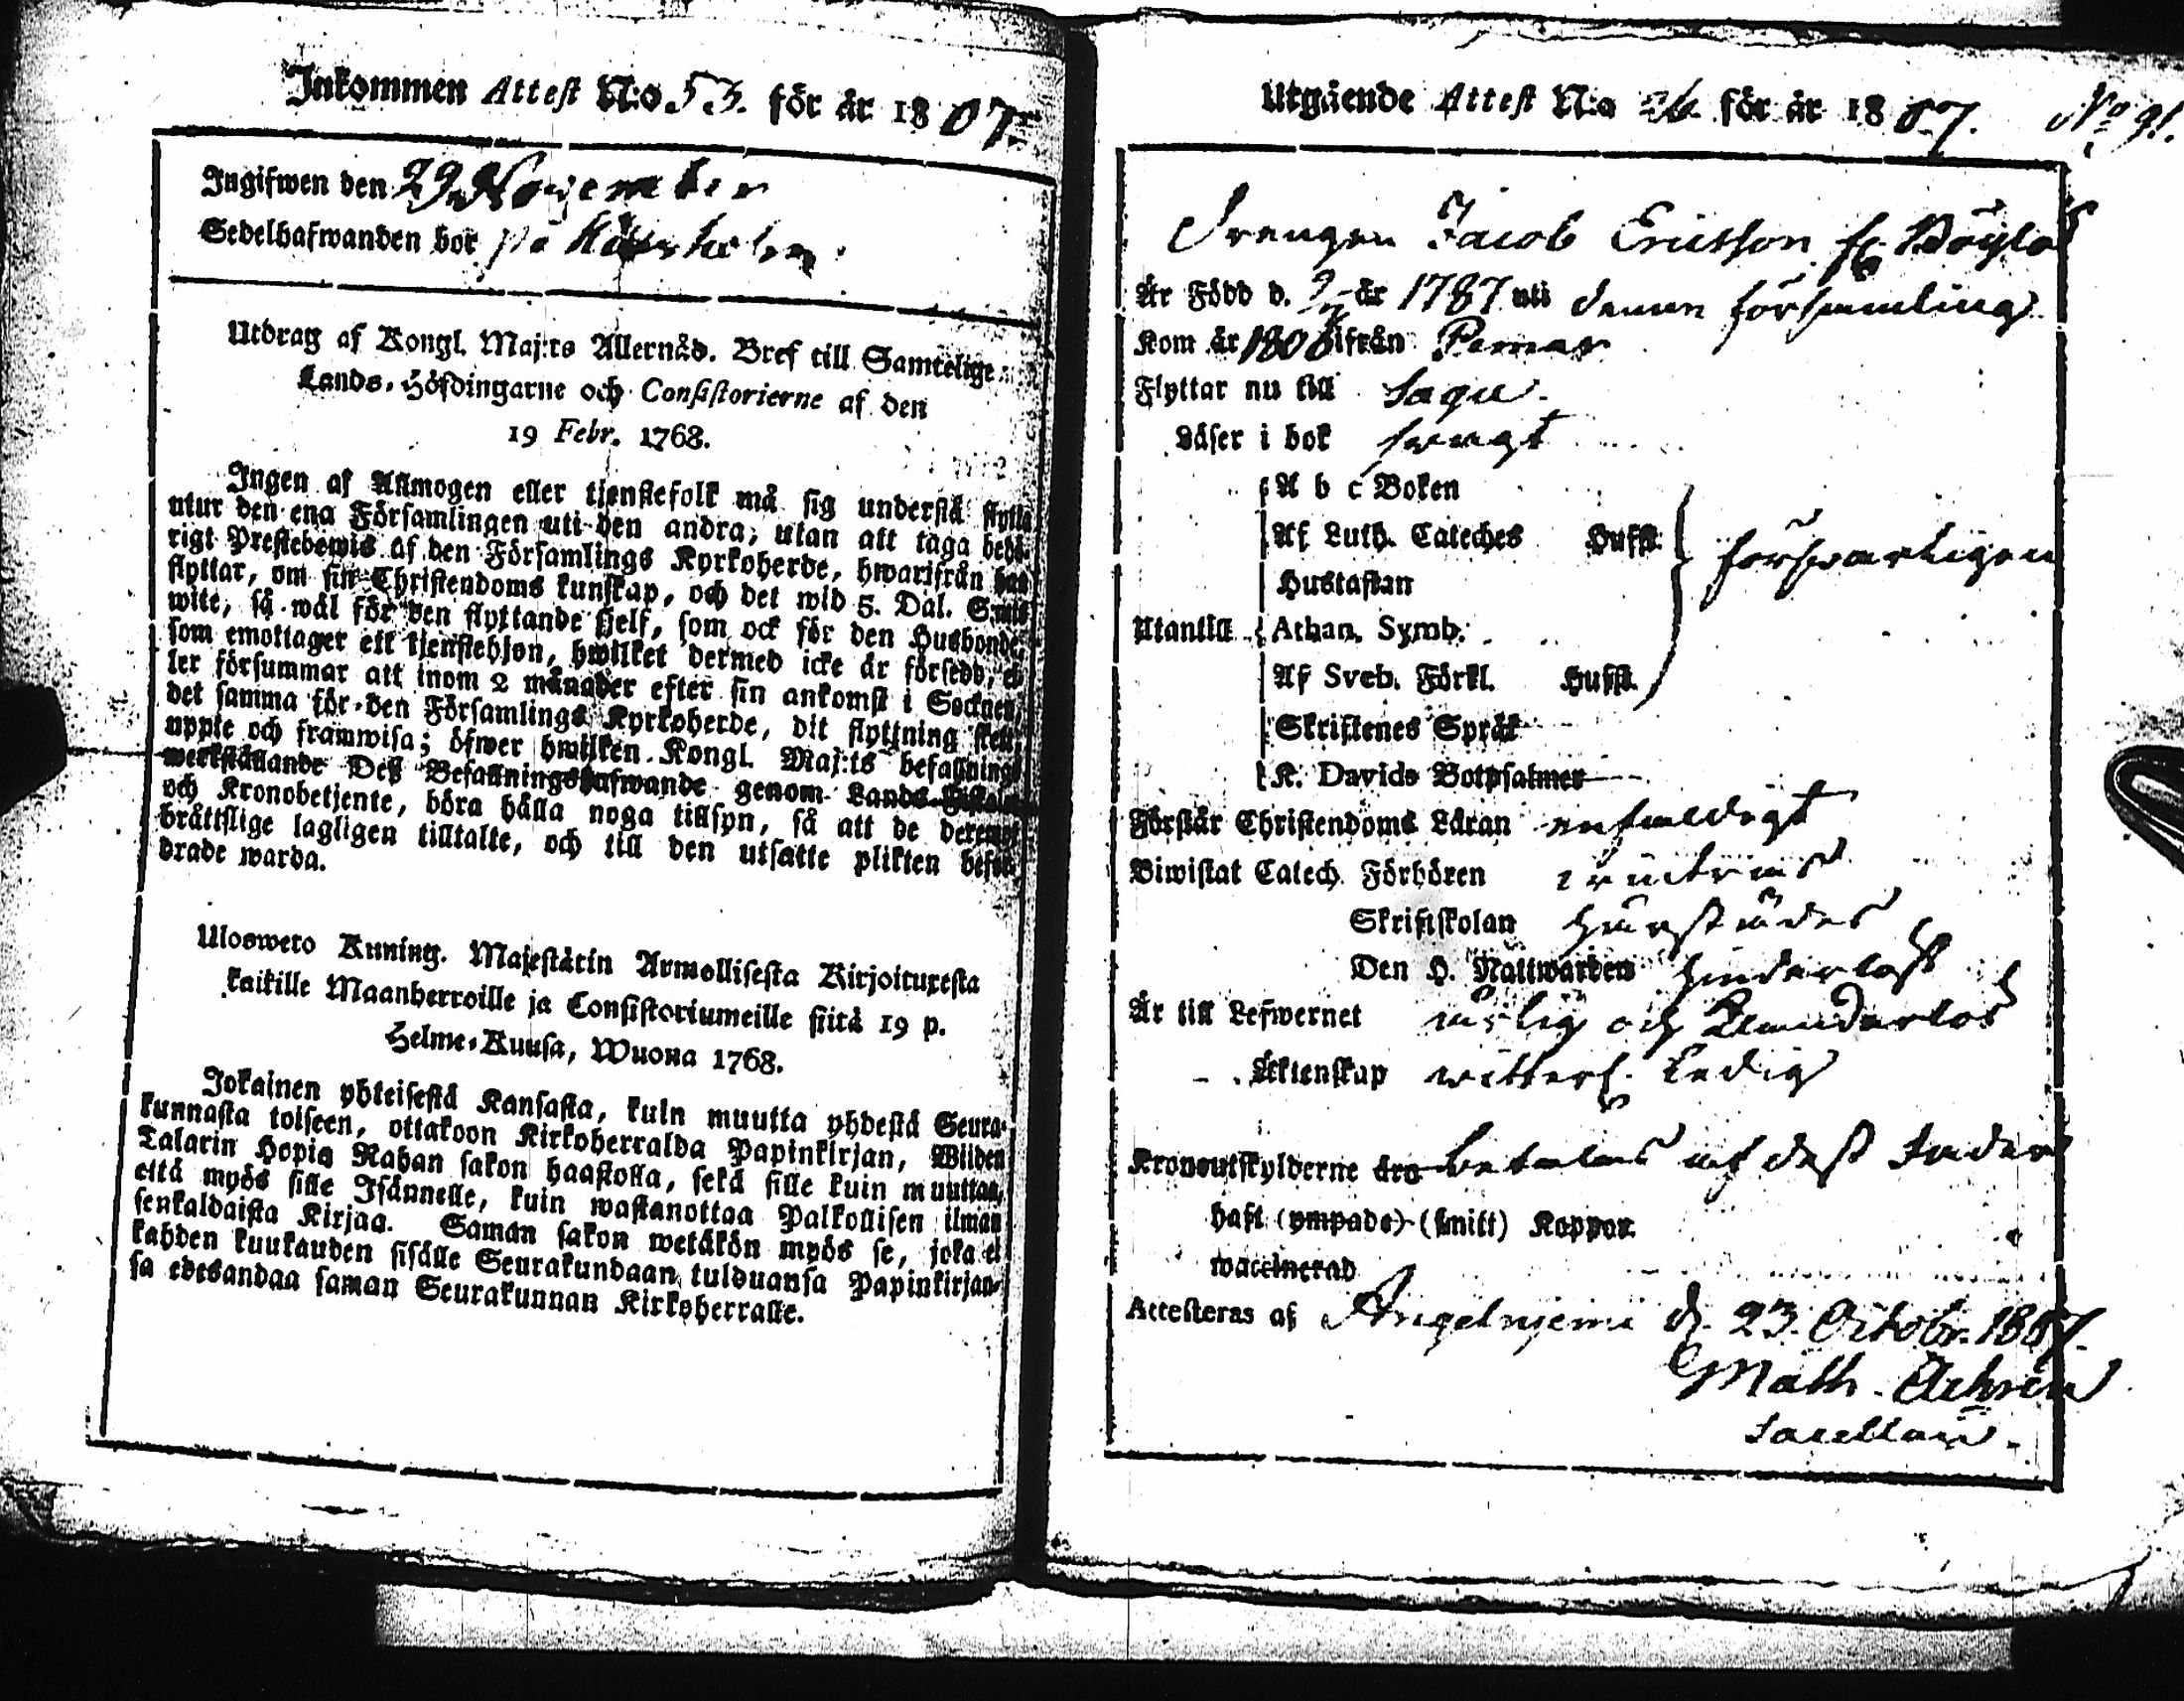 Inkommen Attest N:o 53. för år 1807.
Ingifwen den 29 November
Sedelhafwanden bor på
Utdrag af Kongl. Maj:ts Allernåd. Bref till Samtelige
Lands-Höfdingarne och Consistorierne af den
19 Febr. 1768.
Ingen af Allmogen eller tjenstefolk må sig understå flytta
utur den ena Församlingen uti den andra, utan att taga behö-
rigt Prestebewis af den Församlings Kyrkoherde, hwarifrån han
flyttar, om sin Christendoms kunskap, och det wid 5. Dal. S:mts
wite, så wäl för den flyttande sjelf, som ock för den Husbonde,
som emottager ett tjenstehjon, hwilket dermed icke är försedd, el-
ler försummar att inom 2 månader efter sin ankomst i Socknen,
det samma för den Församlings Kyrkoherde, dit flyttning sker,
uppte och framwisa; öfwer hwilken Kongl. Maj:ts befallnings
werkställande Deß Befallningshafwande genom Lands-Fiskaler
och Kronobetjente, böra hålla noga tillsyn, så att de deremot
bråttslige lagligen tilltalte, och till den utsatte plikten befor-
drade warda.
Ulosweto Kuning. Majestätin Armollisesta Kirjoituxesta
kaikille Maanherroille ja Consistoriumeille siitä 19 p.
Helme-Kuusa, Wuona 1768.
Jokainen yhteisestä Kansasta, kuin muutta yhdestä Seura-
kunnasta toiseen, ottakoon Kirkoherralda Papinkirjan, Wiiden
Talarin Hopia Rahan sakon haastolla, sekä sille kuin muuttaa,
että myös sille Isännelle, kuin wastanottaa Palkollisen ilman
senkaldaista Kirjaa. Saman sakon wetäkön myös se, joka ei
kahden kuukauden sisälle Seurakundaan tulduansa Papinkirjan-
sa edesandaa saman Seurakunnan Kirkoherralle.
Utgående Attest N:o 26 för år 1807. No 91.
Drengen Jacob Ericsson fr. Böylä
Är Född d. 9/7 år 1787 uti denna församling
Kom år 1806 ifrån Pemar
Flyttar nu till Sagu.
Läser i bok swagt
A b c Boken
Af Luth. Cateches Husst.
Hustaflan
försvarligen
Utantill Athan. Symb.
Af Sveb. Förkl. Husst.
Skriftenes Språk
K. Davids Botpsalmer
Förstår Christendoms Läran enfaldigt
Biwistat Catech. Förhören
Skriftskolan härstädes
Den H. Nattwarden hinderlöst
Är till Lefwernet ärlig och klanderlös
Äktenskap witterl. Ledig
Kronoutskylderne äro betalas af dess
haft (ympade) (smitt) Koppor.
waccinerad
Attesteras af Angelniemi d. 23. Octobr. 1807.
Math.
Sacellan.